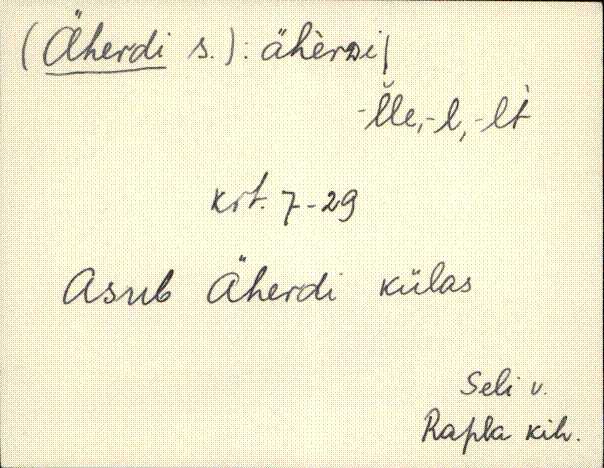 (Äherdi s.): ähèrdi|
-l̆le, -l, -lt̀
krt. 7-29
Asub Äherdi külas
Seli v.
Rapla kih.